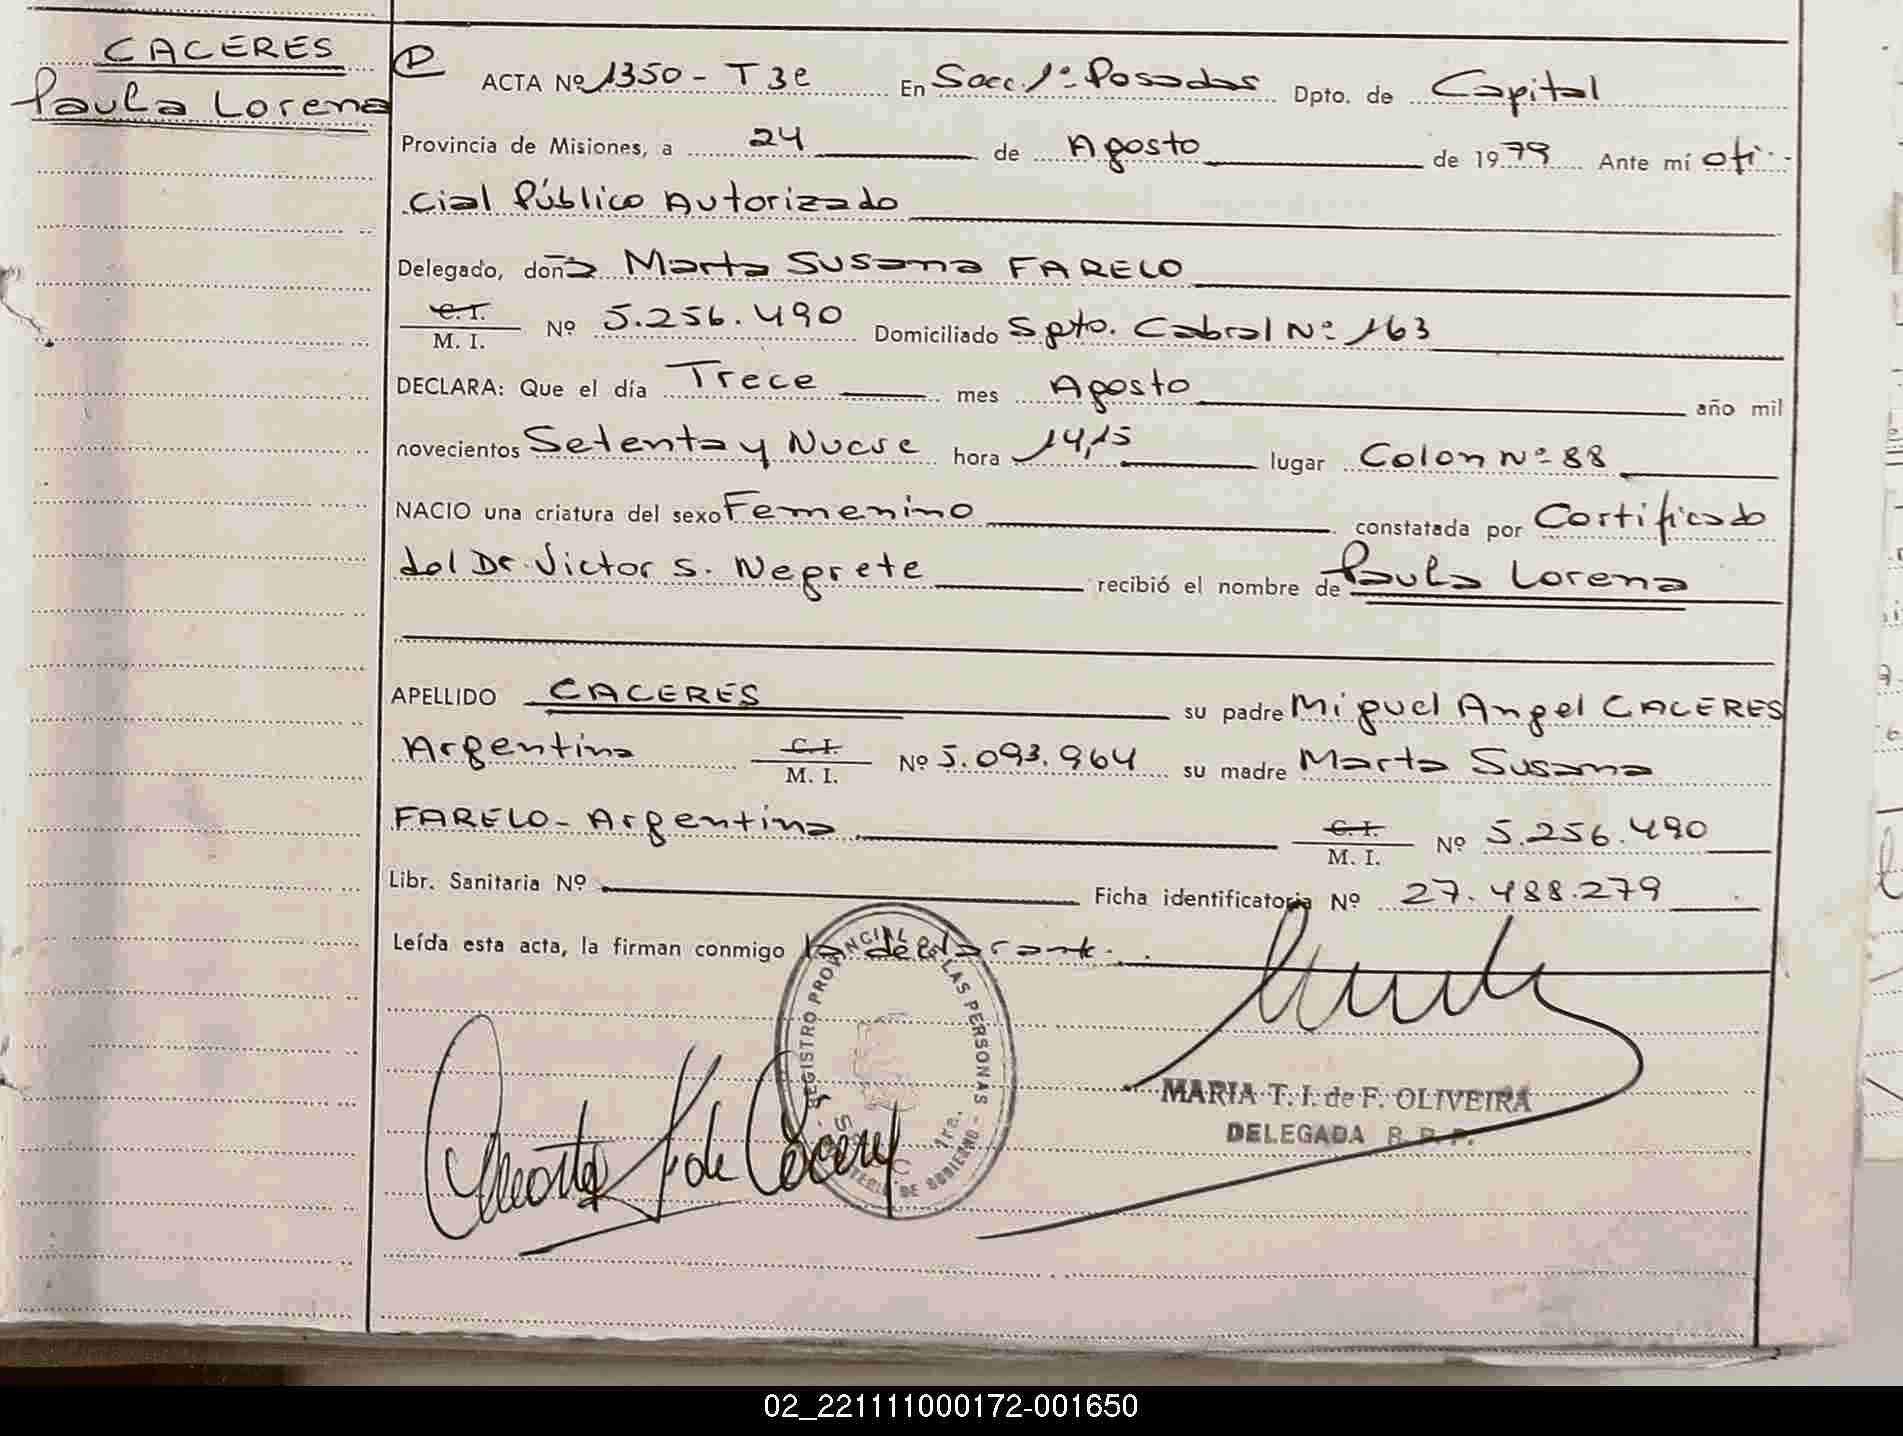 CACERES
Paula Lorena
D
ACTA Nº 1350 - T 3º En Secc. 1º Posadas Dpto. de Capital
Provincia de Misiones, a 24 de Agosto de 1979 Ante mí ofi-
cial Público Autorizado
Delegado, doña Marta Susana FARELO
C.I.
M. I. Nº 5.256.490 Domiciliado Sgto. Cabral Nº 163
DECLARA: Que el día Trece mes Agosto año mil
novecientos Setenta y Nueve hora 14,15 lugar Colon Nº 88
NACIO una criatura del sexo Femenino constatada por Certificado
del Dr. Victor S. Negrete recibió el nombre de Paula Lorena
APELLIDO CACERES su padre Miguel Angel CACERES
Argentina C.I. M. I. Nº 5.093.964 su madre Marta Susana
FARELO - Argentina C.I. M. I. Nº 5.256.490
Libr. Sanitaria Nº Ficha identificatoria Nº 27.488.279
Leída esta acta, la firman conmigo la declarante.
REGISTRO PROVINCIAL DE LAS PERSONAS
1ra.
DE GOBIERNO
Marta F. de Caceres
MARIA T. I. de F. OLIVEIRA
DELEGADA R. P. P.
02_221111000172-001650